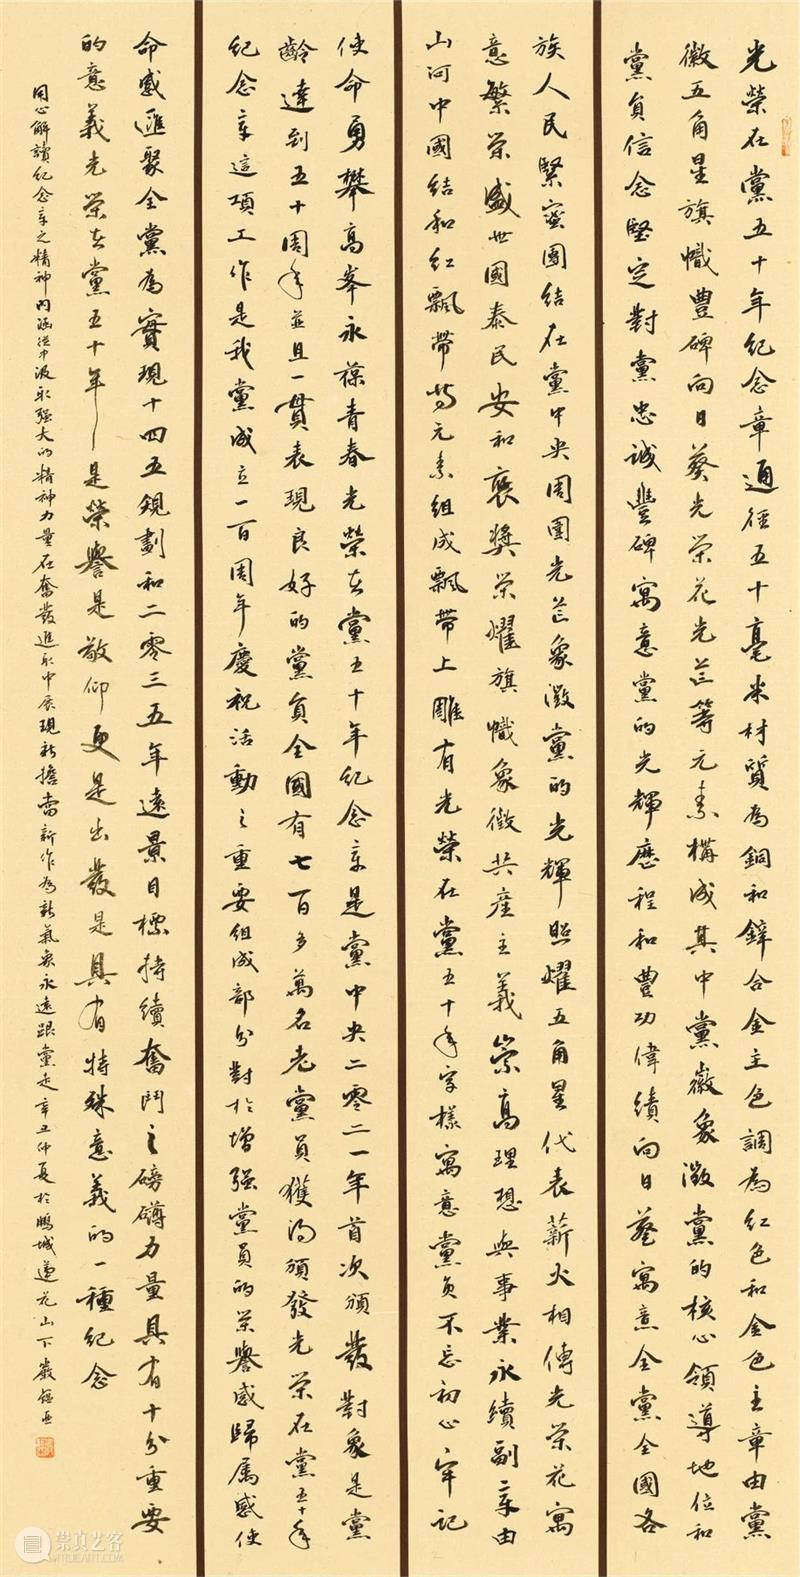 光榮在黨五十年紀念章通徑五十毫米材質為銅和鋅合金主色調為紅色和金色主章由黨
徽五角星旗幟豐碑向日葵光榮花光芒等元素構成其中黨徽象徵黨的核心領導地位和
黨員信念堅定對黨忠誠豐碑寓意黨的光輝歷程和豐功偉績向日葵寓意全黨全國各
族人民緊密團結在黨中央周圍光芒象徵黨的光輝照耀五角星代表薪火相傳光榮花寓
意繁榮盛世國泰民安和褒獎榮耀旗幟象徵共產主義崇高理想與事業永續副章由
山河中國結和紅飄帶等元素組成飄帶上雕有光榮在黨五十年字樣寓意黨員不忘初心牢記
使命勇攀高峯永葆青春光榮在黨五十年紀念章是黨中央二零二一年首次頒發對象是黨
齡達到五十周年並且一貫表現良好的黨員全國有七百多萬名老黨員獲得頒發光榮在黨五十年
紀念章這項工作是我黨成立一百周年慶祝活動之重要組成部分對於增強黨員的榮譽感歸属感使
命感匯聚全黨為實現十四五規劃和二零三五年遠景目標持續奮鬥之磅礴力量具有十分重要
的意義光榮在黨五十年是榮譽是敬仰更是出發是具有特殊意義的一種紀念
同心解讀紀念章之精神內涵從中汲取强大的精神力量在奮發進取中展現新擔當新作為新氣象永遠跟黨走辛丑仲夏於鵬城蓮花山下嚴
崇真艺客